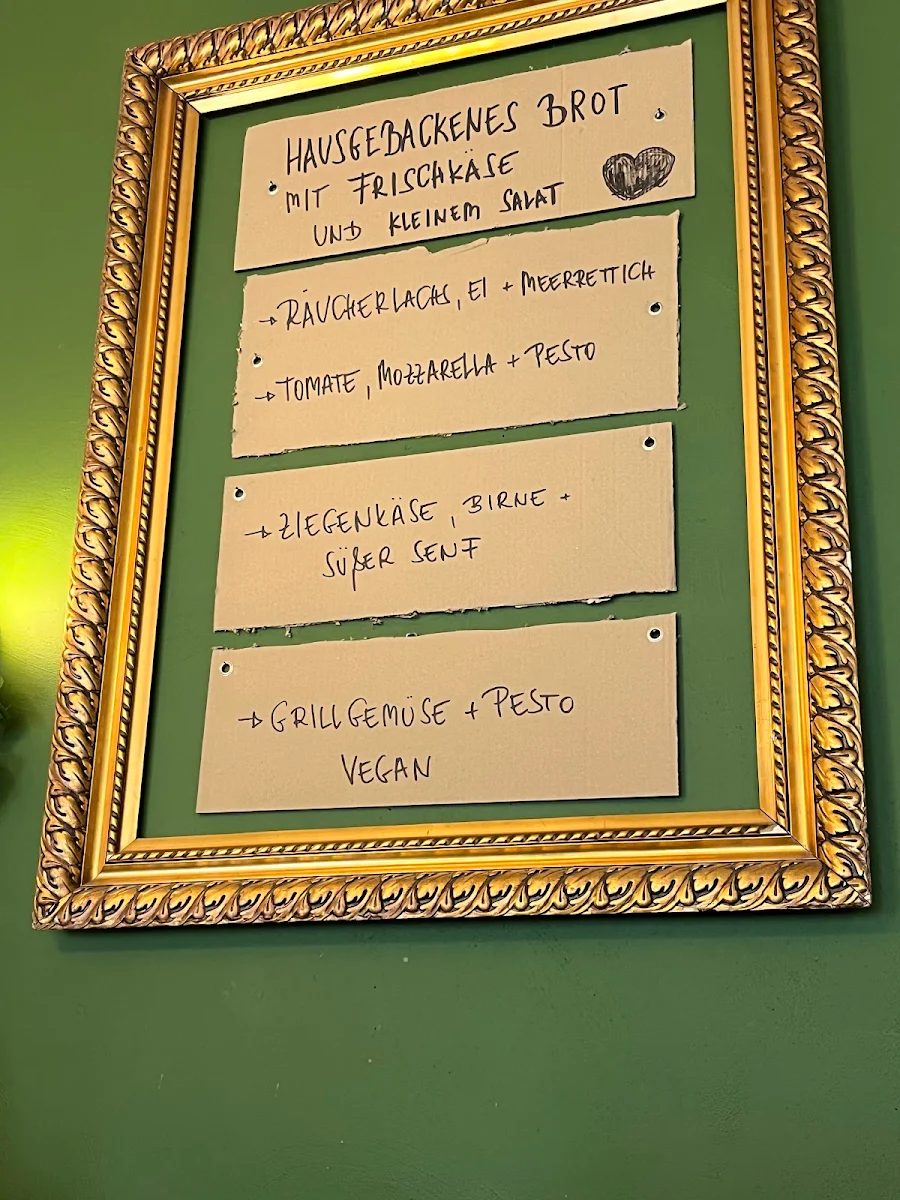 HAUSGEBACKENES BROT
MIT FRISCHKÄSE
UND KLEINEM SALAT
→ RÄUCHERLACHS, EI + MEERRETTICH
→ TOMATE, MOZZARELLA + PESTO
→ ZIEGENKÄSE, BIRNE +
SÜßER SENF
→ GRILLGEMÜSE + PESTO
VEGAN